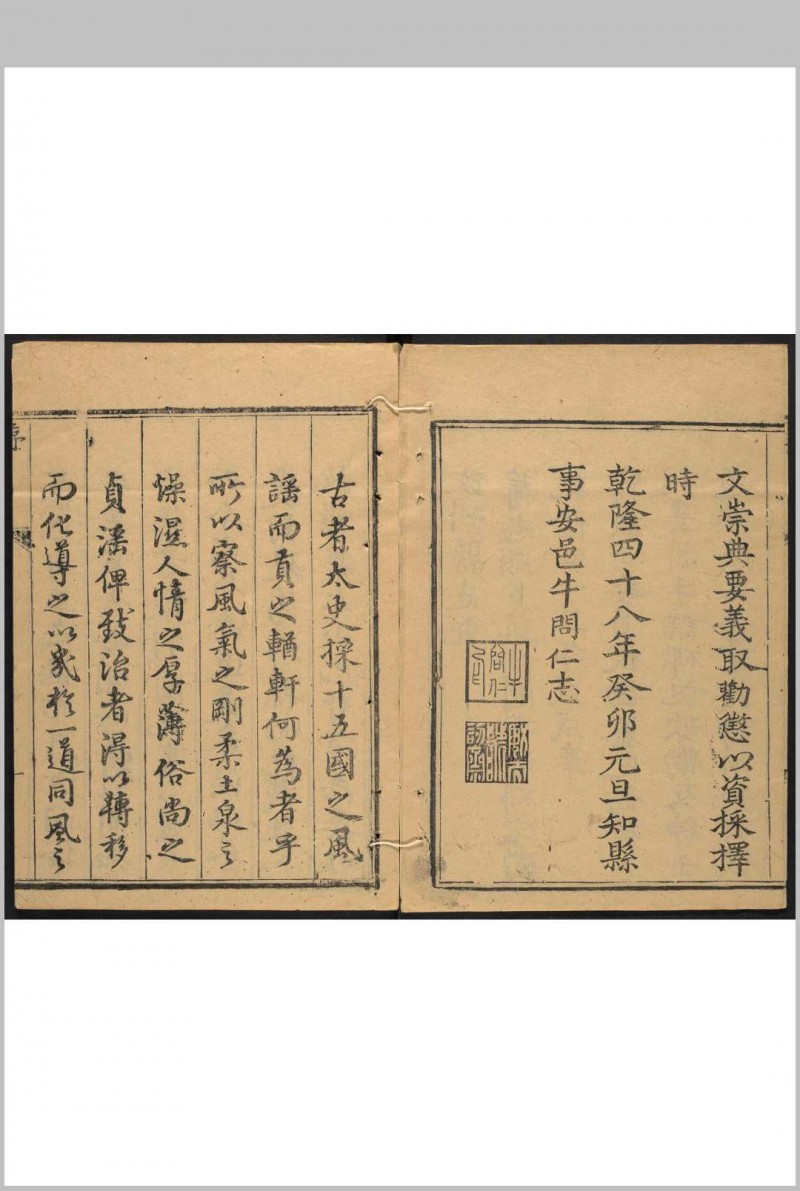 文崇典要義取勸懲以資採擇
時
乾隆四十八年癸卯元旦知縣
事安邑牛問仁志
古者太史採十五國之風
謡而貢之輶軒何為者乎
所以察風氣之剛柔土泉之
燥濕人情之厚薄俗尚之
貞滛俾致治者得以轉移
而化導之以幾於一道同風之